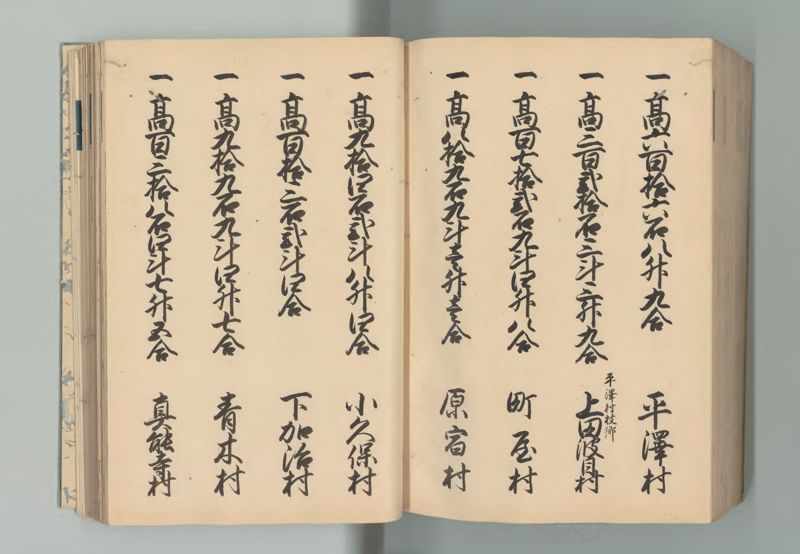 一 高六百拾六石八升九合 平澤村
一 高三百弐拾石三斗三升九合 平澤村枝郷 上田波目村
一 高百七拾弐石九斗四升八合 町屋村
一 高八拾九石九斗壱升壱合 原宿村
一 高九拾四石弐斗八升四合 小久保村
一 高百拾三石弐斗四合 下加治村
一 高九拾九石九斗四升七合 青木村
一 高百三拾八石四斗七升五合 真能寺村